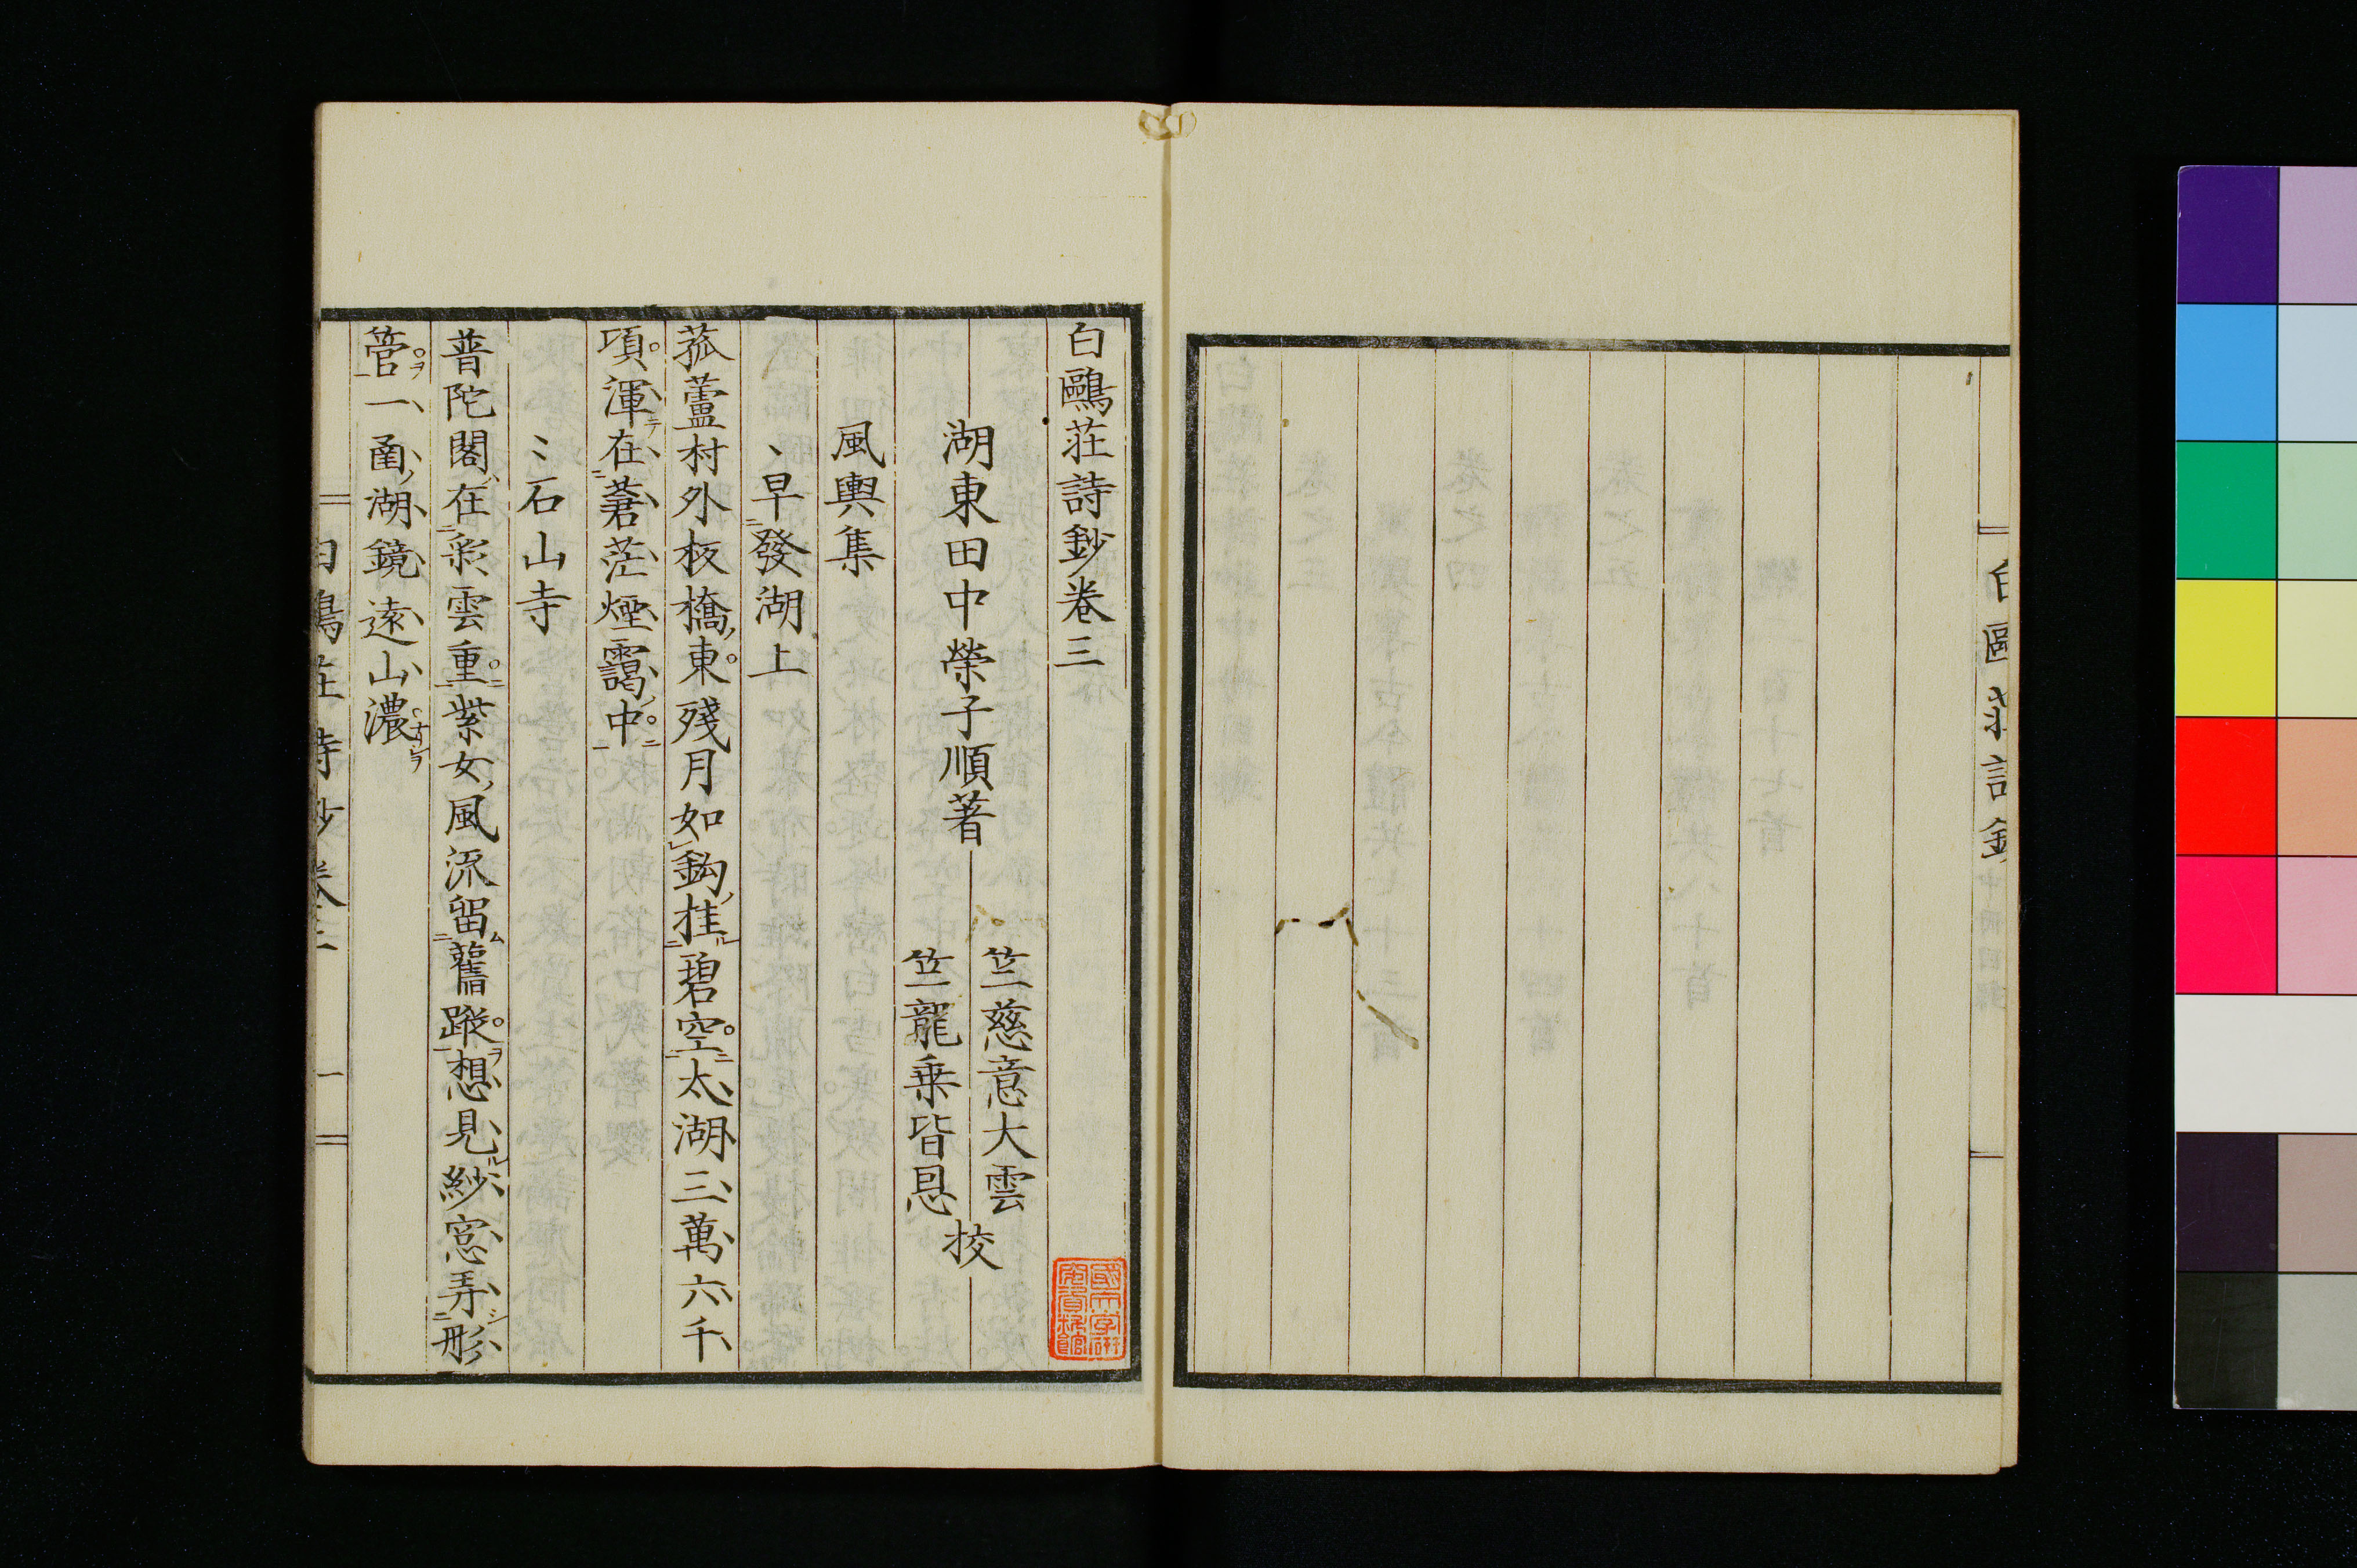 白鷗莊詩鈔
白鷗莊詩鈔卷三
湖東田中榮子順著
竺慈意大雲
竺龍乗皆恩
挍
風輿集
早發湖上
菰蘆村外板橋東殘月如鈎挂碧空太湖三萬六千
項渾在蒼茫煙靄中
石山寺
普陀閣在彩雲重紫女風流留舊蹤想見紗窓弄彤
管一凾湖鏡遠山濃
白鷗莊詩鈔卷三
一